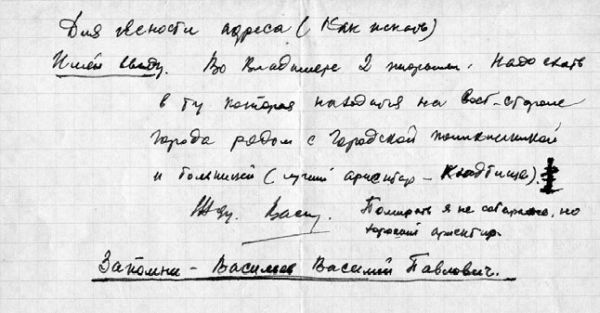 Для ясности адреса (Как искать)
Имей ввиду. Во Владимире 2 тюрьмы. Надо ехать
в ту которая находится на вост-стороне
города рядом с городской поликлиникой
и больницей (лучший ориентир – Кладбище).
Жду. Васи
Помирать я не собираюсь, но
хороший ориентир.
Запомни – Васильев Василий Павлович.